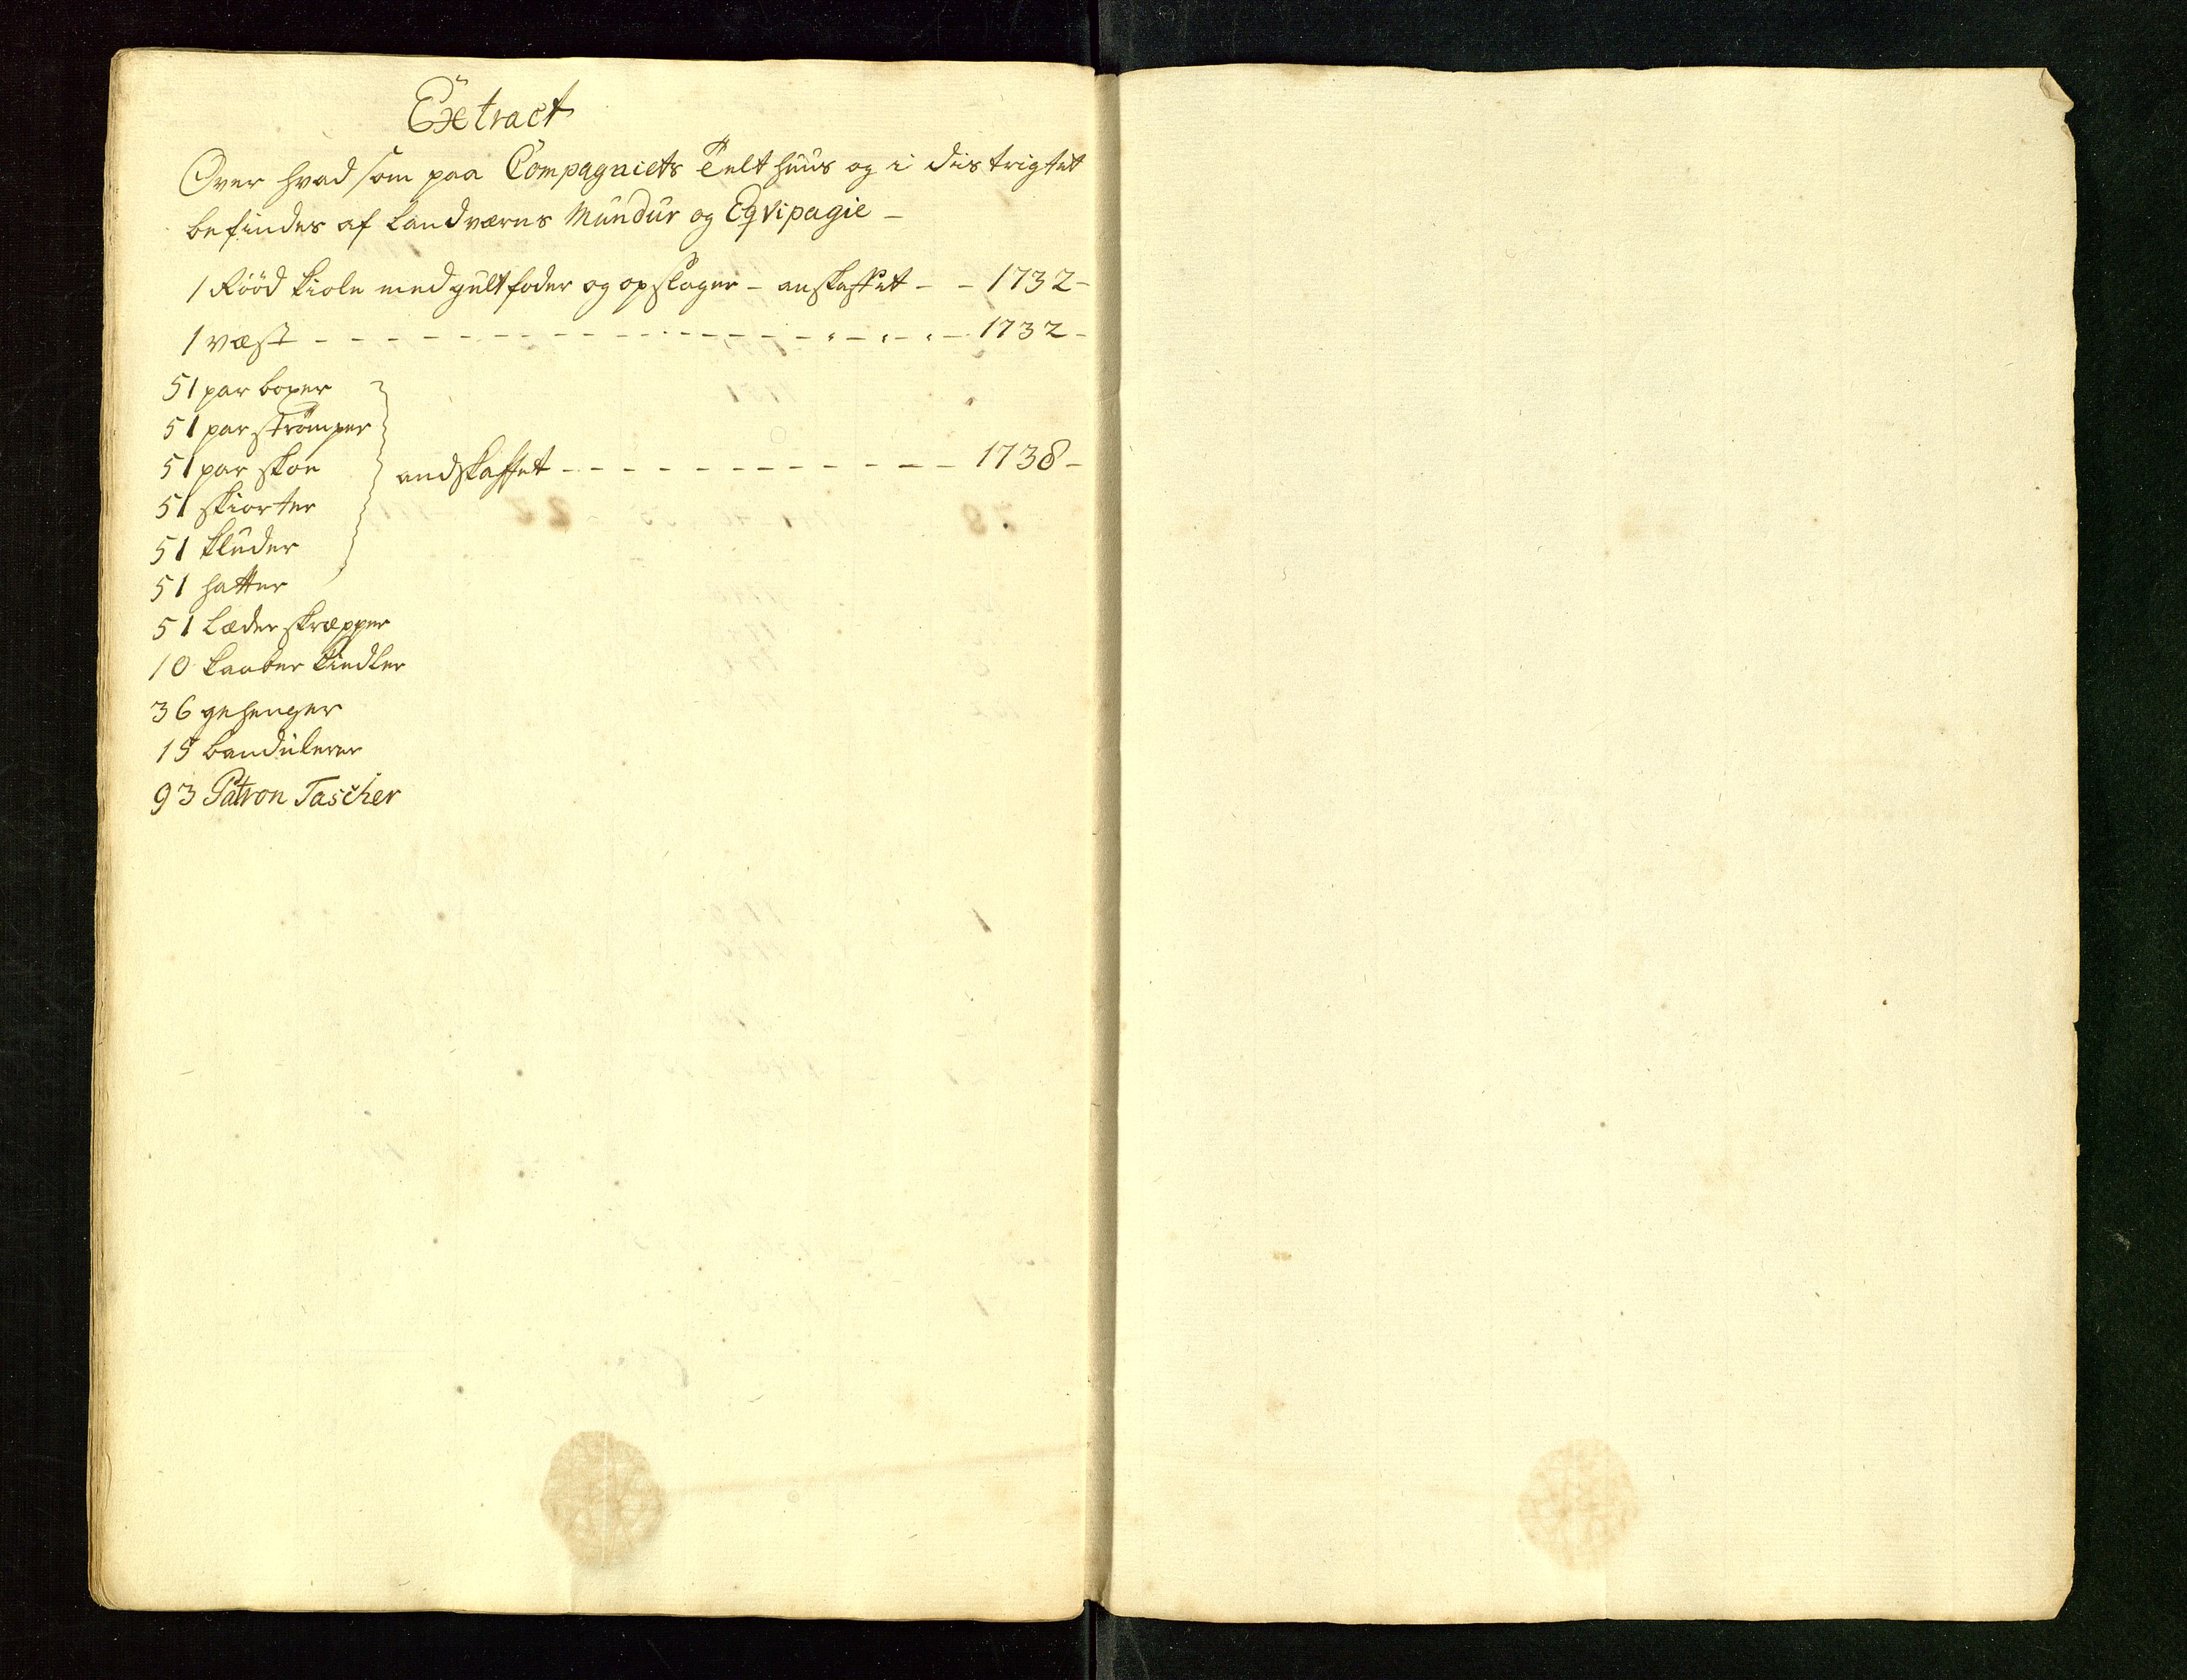 Extract
Over hvad som paa Compagniets Telthuus og i distrigtet
befindes af Landværns Mundur og Eqvipagie -
1 Rööd kiole med gult foder og opslager - anskaffet - - 1732 -
1 væst - - - - - - - - - - - - - - - - - 1732 -
51 par boxer
51 par strømper
51 par skoe
andskaffet - - - - - - - - - - - - 1738 -
51 skiorter
51 kluder
51 hatter
51 Læder skræpper
10 kaaber kiedler
36 gehenger
15 bandulerer
93 Patron Tascher